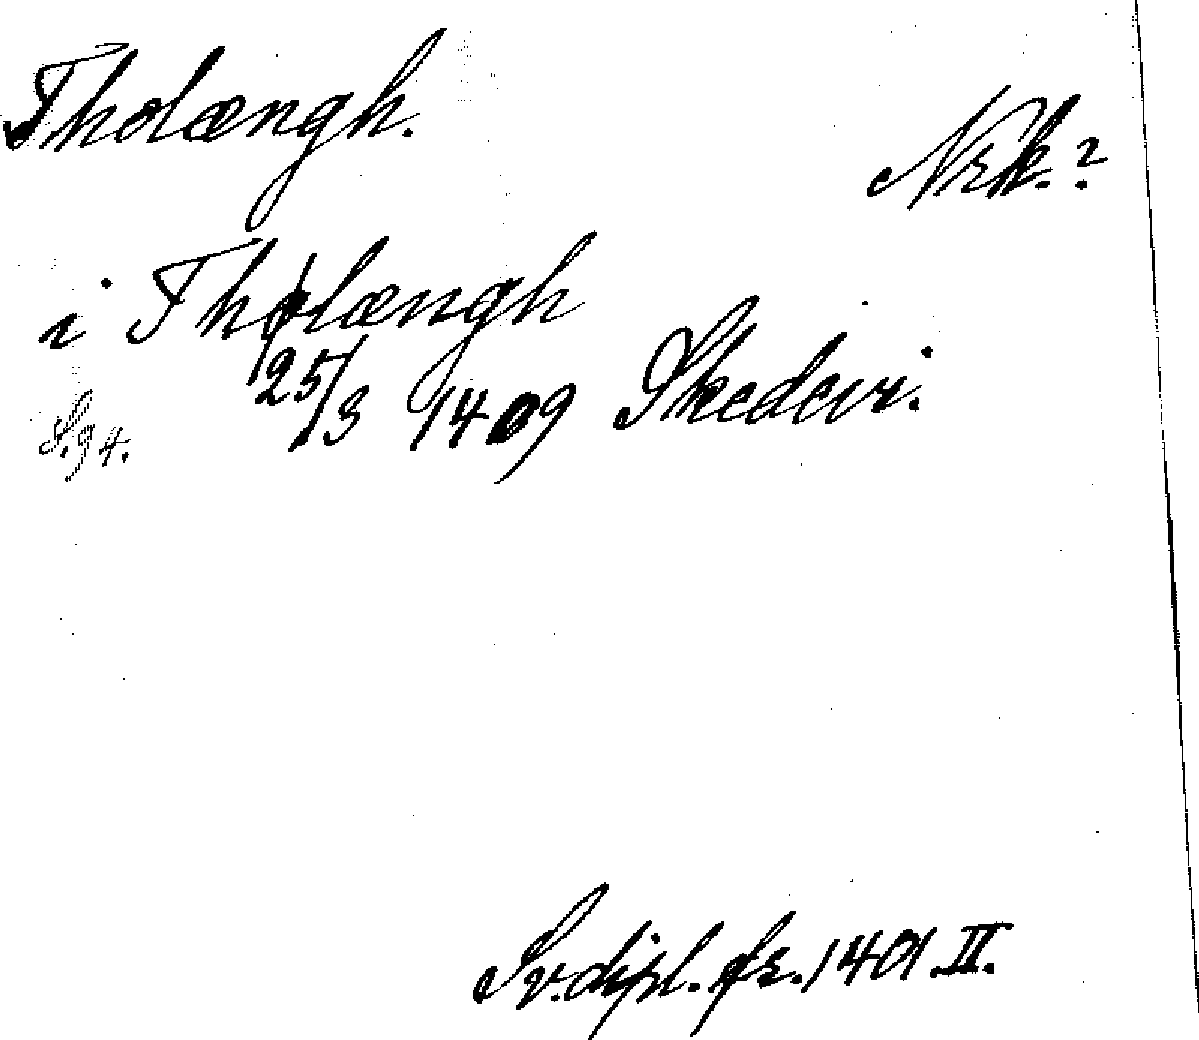 Tholængh.
Nrk.?
i Tholængh
25/3 1409 Skedevi.
S. 94.
Sv. dipl. fr. 1401. II.